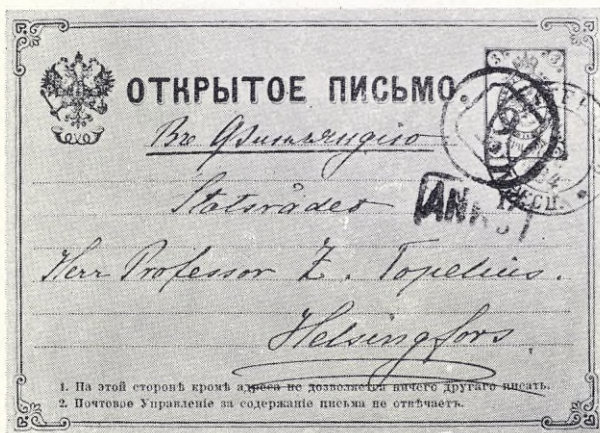 ОТКРЫТОЕ ПИСЬМО.
Въ Финляндію
Statsrådet
ANK
Herr Professor Z. Topelius.
Helsingfors
1. На этой сторонѣ кромѣ адреса не дозволяется ничего другаго писать.
2. Почтовое Управленіе за содержаніе письма не отвѣчаетъ.